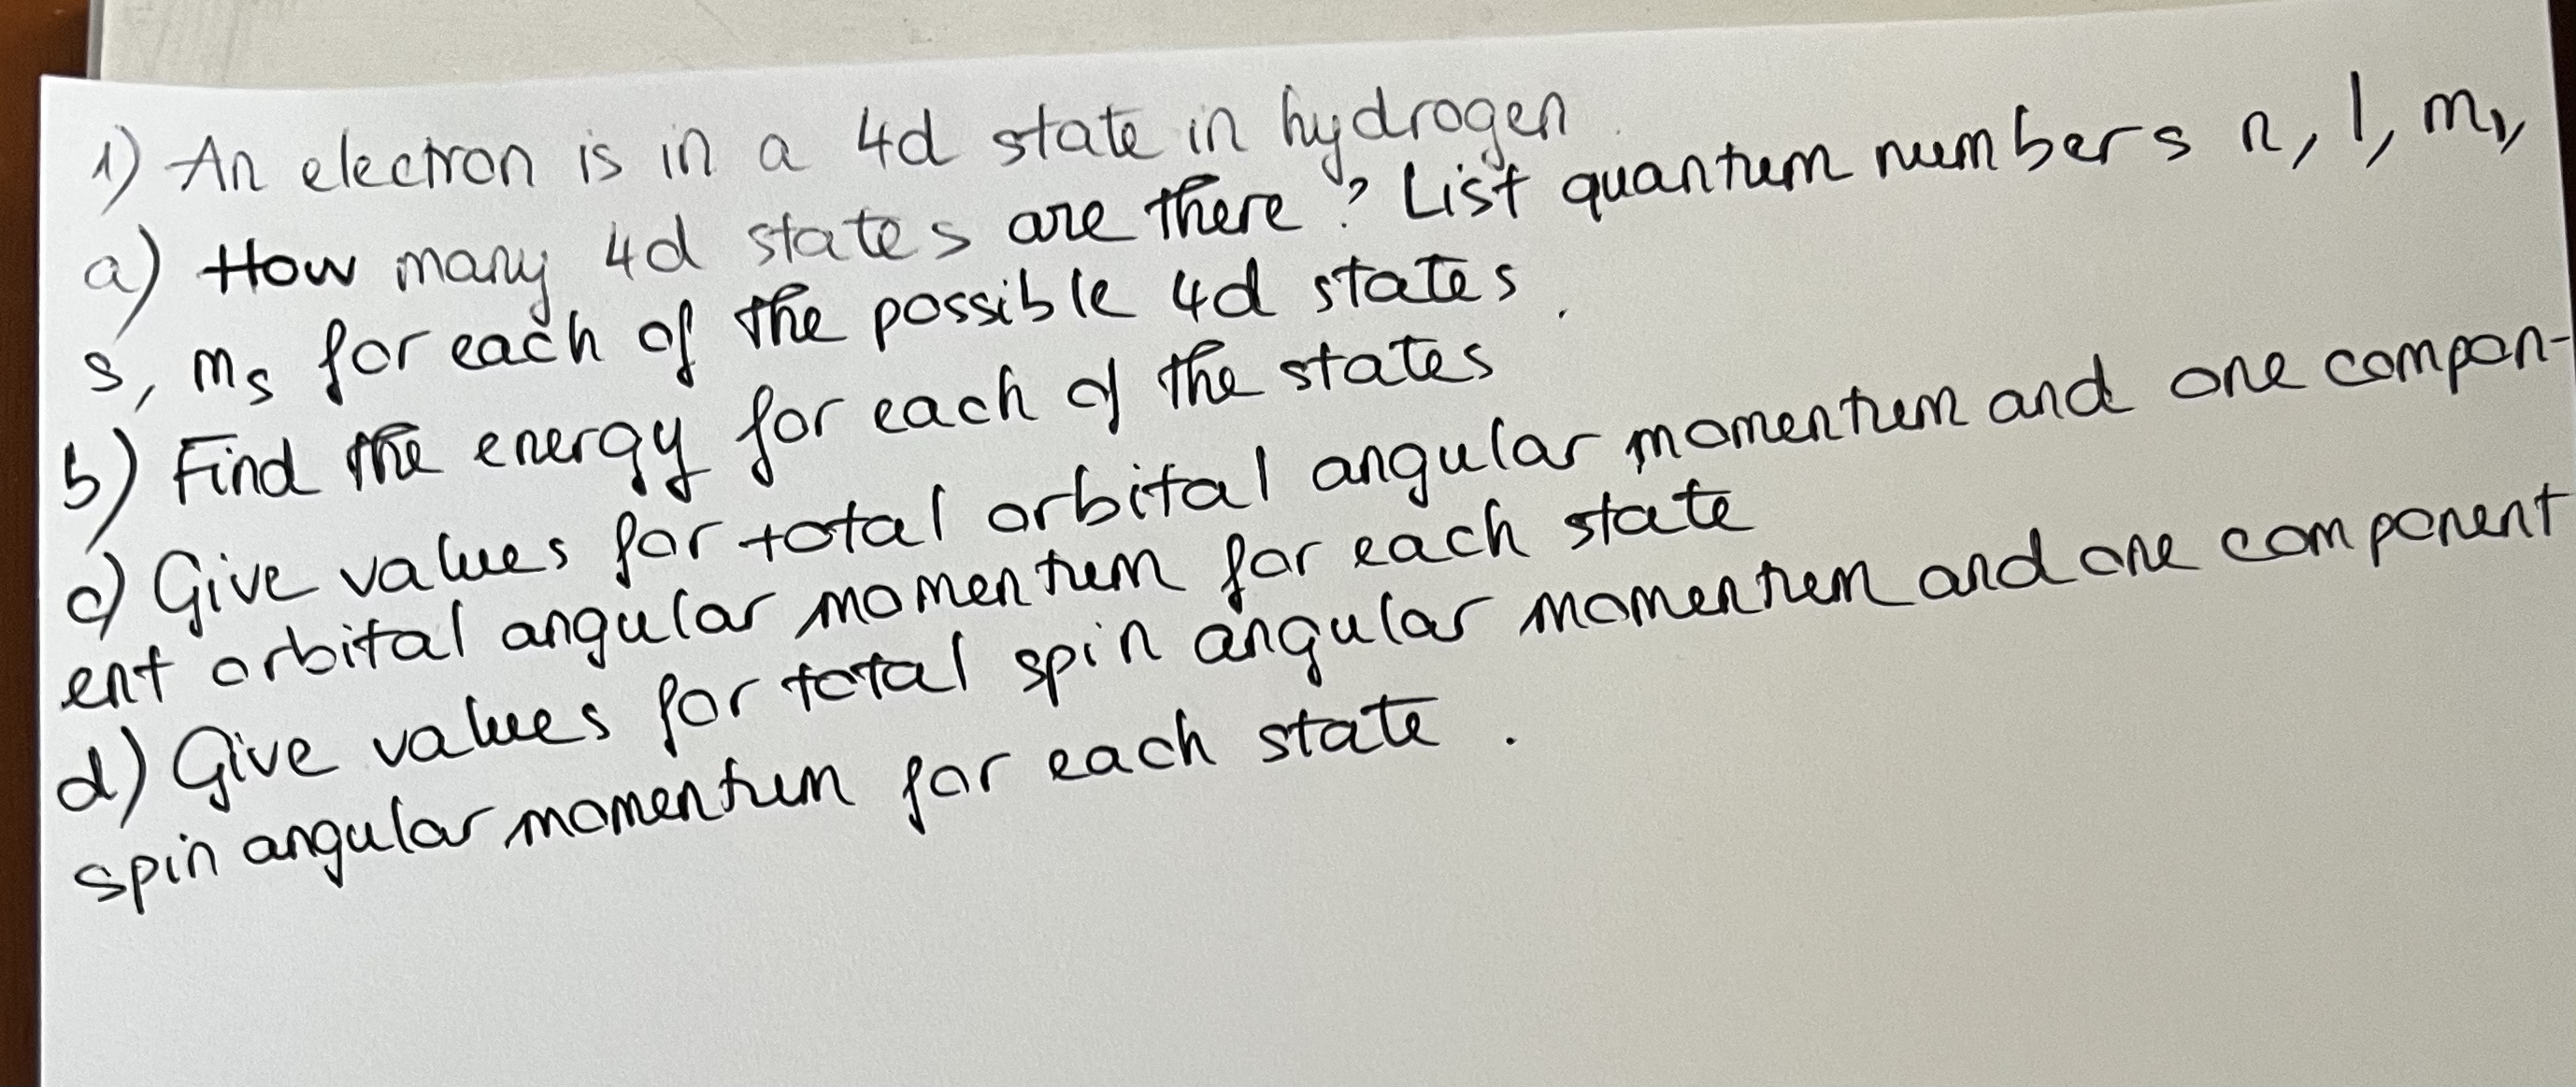 1) An electron is in a 4d state in hydrogen.
a) How many 4d states are there? List quantum numbers n, l, ml,
s, ms for each of the possible 4d states.
b) Find the energy for each of the states
c) Give values for total orbital angular momentum and one compon-
ent orbital angular momentum for each state
d) Give values for total spin angular momentum and one component
spin angular momentum for each state.